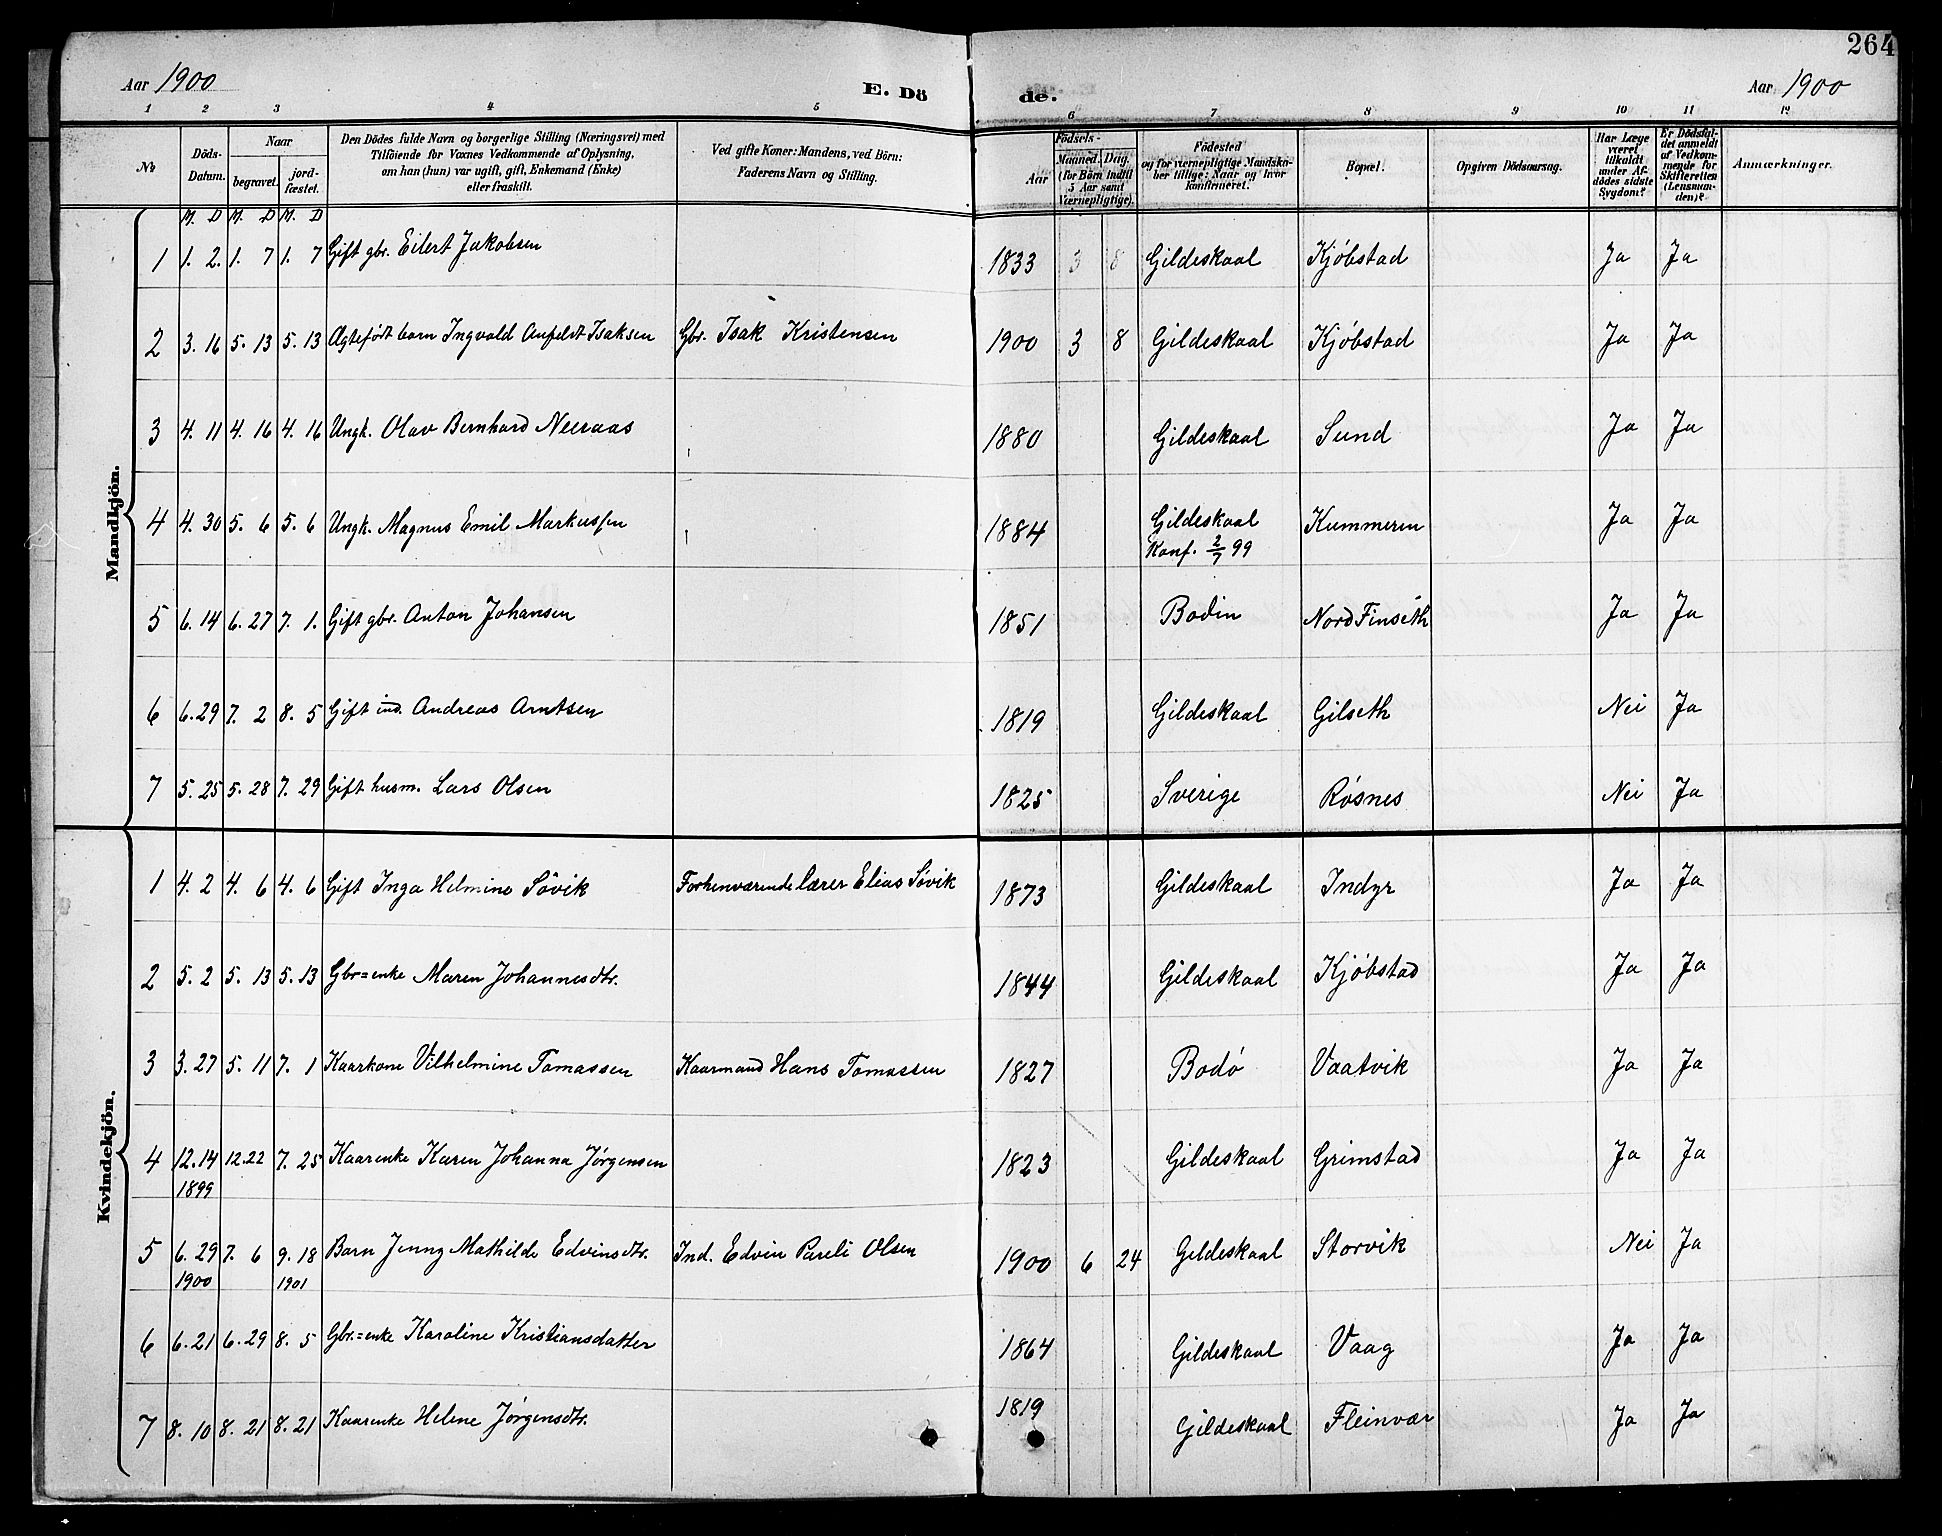 264
Aar 1900 E. Dö de. Aar 1900
1 2 3 4 5 6 7 8 9 10 11 12
No
Döds-Datum.
Naar
begravet. jordfæstet.
Den Dödes fulde Navn og borgerlige Stilling (Næringsvei) med
Tilföiende for Voxnes Vedkommende af Oplysning,
om han (hun) var ugift, gift, Enkemand (Enke)
eller fraskilt.
Ved gifte Koner: Mandens, ved Börn:
Faderens Navn og Stilling.
Födsels-
Aar
Maaned. Dag.
(for Börn indtil
5 Aar samt
Værnepligtige).
Födested
og for værnepligtige Mandskaber tillige: Naar og hvor
konfirmeret.
Bopæl.
Opgiven Dödsaarsag.
Har Læge
været
tilkaldt
under Afdödes sidste
Sygdom?
Er Dödsfaldet anmeldt
af Vedkommende for
Skifteretten
(Lensmanden)?
Anmærkninger.
M. D M. D M. D
Mandkjön.
1 1. 2. 1. 7 1. 7 Gift gbr. Eilert Jakobsen 1833 3 8 Gildeskaal Kjøbstad Ja Ja
2 3. 16 5. 13 5. 13 Ægtefødt barn Ingvald Anfeldt Isaksen Gbr. Isak Kristensen 1900 3 8 Gildeskaal Kjøbstad Ja Ja
3 4. 11 4. 16 4. 16 Ungk. Olav Bernhard Neeraas 1880 Gildeskaal Sund Ja Ja
4 4. 30 5. 6 5. 6 Ungk. Magnus Emil Markussen 1884 Gildeskaal Kummeren Ja Ja
Konf. 2/7 99
5 6. 14 6. 27 7. 1. Gift gbr. Anton Johansen 1851 Bodin Nord Finseth Ja Ja
6 6. 29 7. 2 8. 5 Gift ind. Andreas Arntsen 1819 Gildeskaal Gilseth Nei Ja
7 5. 25 5. 28 7. 29 Gift husm. Lars Olsen 1825 Sverige Røsnes Nei Ja
Kvindekjön.
1 4. 2 4. 6 4. 6 Gift Inga Helmine Søvik Forhenværende lærer Elias Søvik 1873 Gildeskaal Indyr Ja Ja
2 5. 2 5. 13 5. 13 Gbr=enke Maren Johannesdtr. 1844 Gildeskaal Kjøbstad Ja Ja
3 3. 27 5. 11 7. 1 Kaarkone Vilhelmine Tomassen Kaarmand Hans Tomassen 1827 Bodø Vaatvik Ja Ja
4 12. 14 12. 22 7. 25 Kaarenke Karen Johanna Jørgensen 1823 Gildeskaal Grimstad Ja Ja
1899
5 6. 29 7. 6 9. 18 Barn Jenny Mathilde Edvinsdtr. Ind. Edvin Pareli Olsen 1900 6 24 Gildeskaal Storvik Nei Ja
1900 1901
6 6. 21 6. 29 8. 5 Gbr.=enke Karoline Kristiansdatter 1864 Gildeskaal Vaag Ja Ja
7 8. 10 8. 21 8. 21 Kaarenke Helene Jørgensdtr. 1819 Gildeskaal Fleinvær Ja Ja